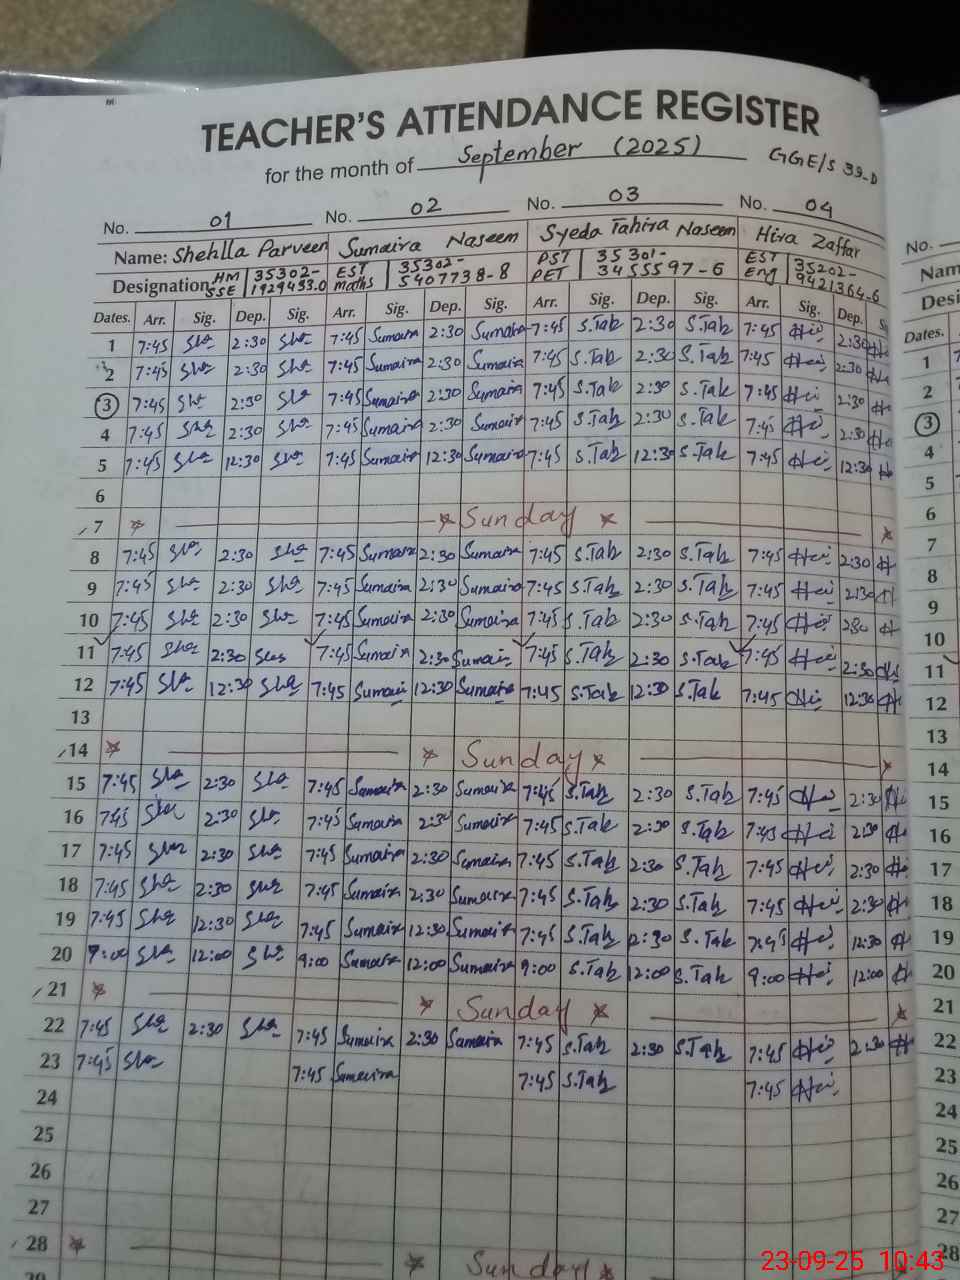 TEACHER'S ATTENDANCE REGISTER
for the month of September (2025) GGE/S 39-D
No. 01 No. 02 No. 03 No. 04 No.
Name: Shehlla Parveen Sumaira Naseem Syeda Tahira Naseem Hira Zaffar Nam
Designation HM SSE 35302- 1929433.0 EST maths 35302- 5407738-8 PST PET 35301- 3455597-6 EST Eng 35202- 9421364-6 Desi
Dates. Arr. Sig. Dep. Sig. Arr. Sig. Dep. Sig. Arr. Sig. Dep. Sig. Arr. Sig. Dep. Si Dates.
1 7:45 Sha 2:30 Sha 7:45 Sumaira 2:30 Sumaira 7:45 S.Tah 2:30 S.Tah 7:45 2:30 1
2 7:45 Sha 2:30 Sha 7:45 Sumaira 2:30 Sumaira 7:45 S.Tah 2:30 S.Tah 7:45 2:30 2
3 7:45 Sha 2:30 Sha 7:45 Sumaira 2:30 Sumaira 7:45 S.Tah 2:30 S.Tah 7:45 2:30 3
4 7:45 Sha 2:30 Sha 7:45 Sumaira 2:30 Sumaira 7:45 S.Tah 2:30 S.Tah 7:45 2:30 4
5 7:45 Sha 12:30 Sha 7:45 Sumaira 12:30 Sumaira 7:45 S.Tah 12:30 S.Tah 7:45 12:30 5
6 6
7 Sunday 7
8 7:45 Sha 2:30 Sha 7:45 Sumaira 2:30 Sumaira 7:45 S.Tah 2:30 S.Tah 7:45 2:30 8
9 7:45 Sha 2:30 Sha 7:45 Sumaira 2:30 Sumaira 7:45 S.Tah 2:30 S.Tah 7:45 2:30 9
10 7:45 Sha 2:30 Sha 7:45 Sumaira 2:30 Sumaira 7:45 S.Tah 2:30 S.Tah 7:45 230 10
11 7:45 Sha 2:30 Sha 7:45 Sumaira 2:30 Sumaira 7:45 S.Tah 2:30 S.Tah 7:45 2:30 11
12 7:45 Sha 12:30 Sha 7:45 Sumai 12:30 Sumaira 7:45 S.Tah 12:30 S.Tah 7:45 12:30 12
13 13
14 Sunday 14
15 7:45 Sha 2:30 Sha 7:45 Sumaira 2:30 Sumaira 7:45 S.Tah 2:30 S.Tah 7:45 2:30 15
16 7:45 Sha 2:30 Sha 7:45 Sumaira 2:30 Sumaira 7:45 S.Tah 2:30 S.Tah 7:45 2:30 16
17 7:45 Sha 2:30 Sha 7:45 Sumaira 2:30 Sumaira 7:45 S.Tah 2:30 S.Tah 7:45 2:30 17
18 7:45 Sha 2:30 Sha 7:45 Sumaira 2:30 Sumaira 7:45 S.Tah 2:30 S.Tah 7:45 2:30 18
19 7:45 Sha 12:30 Sha 7:45 Sumaira 12:30 Sumaira 7:45 S.Tah 2:30 S.Tah 7:45 12:30 19
20 9:00 Sha 12:00 Sha 9:00 Sumaira 12:00 Sumaira 9:00 S.Tah 12:00 S.Tah 9:00 12:00 20
21 Sunday 21
22 7:45 Sha 2:30 Sha 7:45 Sumaira 2:30 Sumaira 7:45 S.Tah 2:30 S.Tah 7:45 2:30 22
23 7:45 Sha 7:45 Sumaira 7:45 S.Tah 7:45 23
24 24
25 25
26 26
27 27
28 Sunday 28
23-09-25 10:43